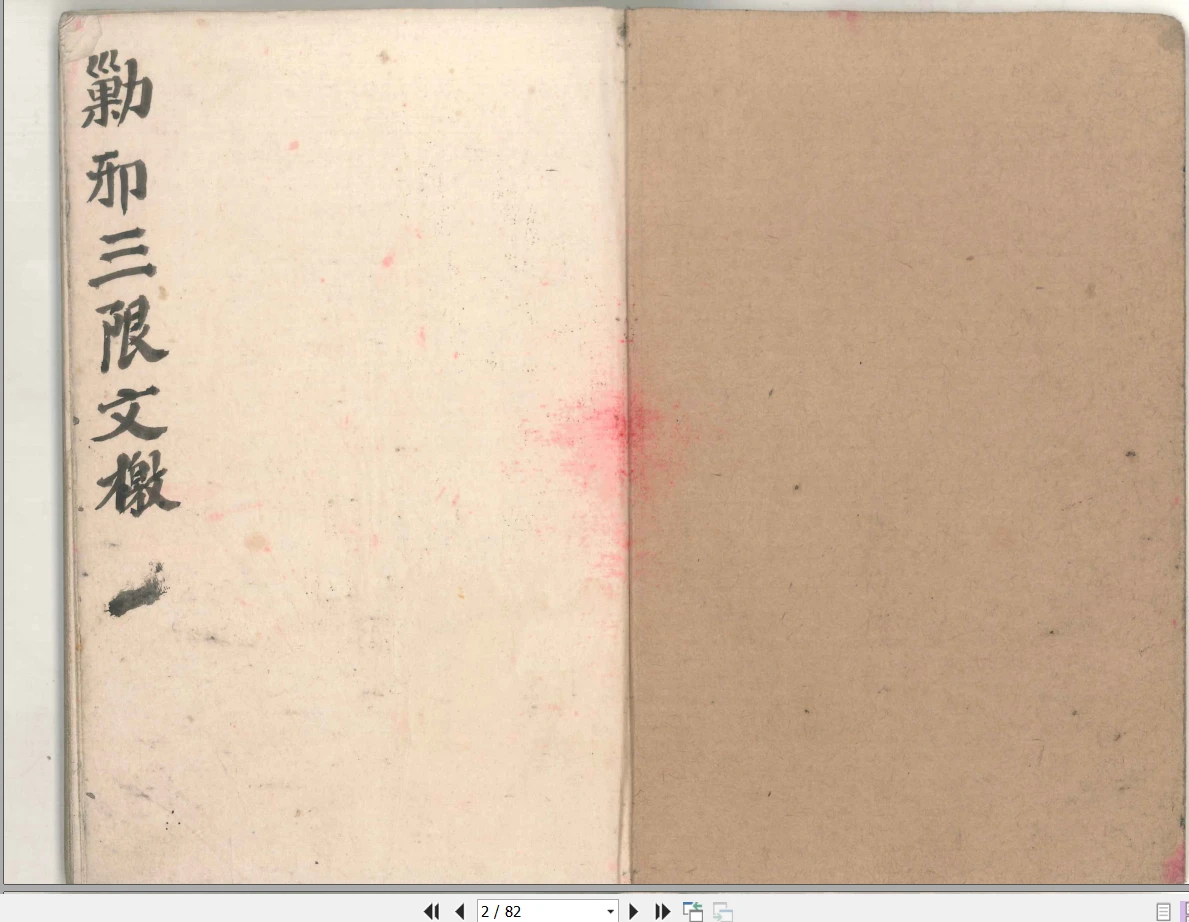 勦邪三限文檄
2 / 82